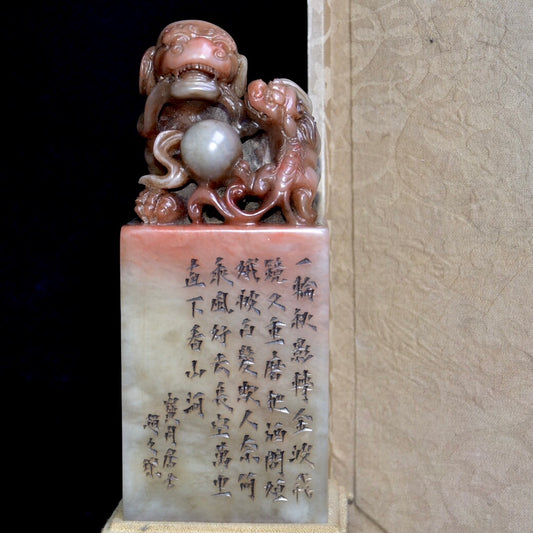 一輪秋影轉金波飛
鏡又重磨把酒問姮
娥被白髮欺人奈何
乘風好去長空萬里
直下看山河
月居士